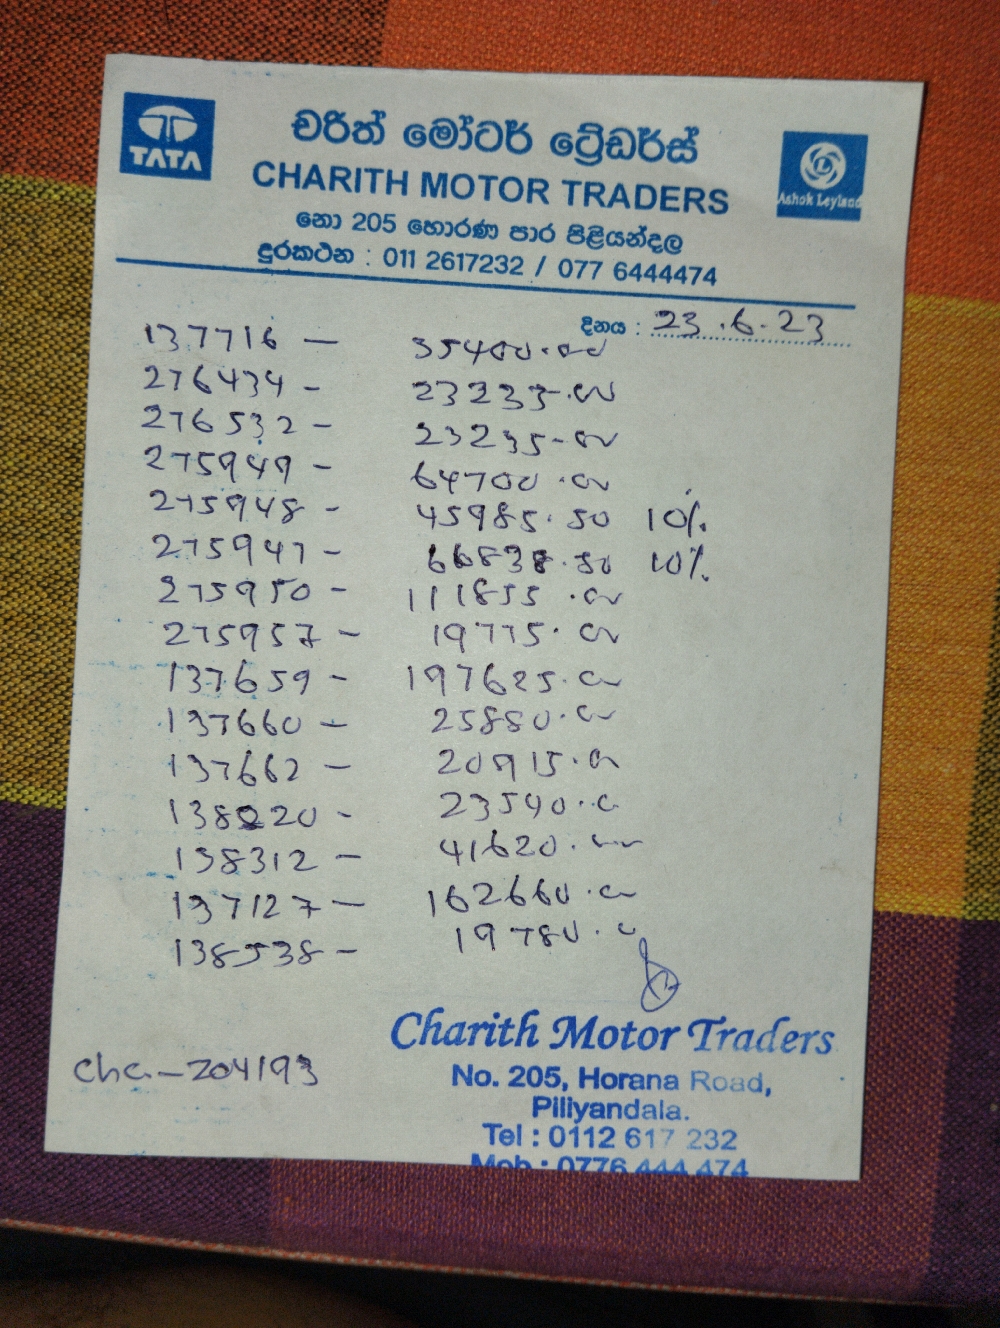 TATA
Ashok Leyland
චරිත් මෝටර් ට්‍රේඩර්ස්
CHARITH MOTOR TRADERS
නො 205 හොරණ පාර පිළියන්දල
දුරකථන : 011 2617232 / 077 6444474
දිනය : 23.6.23
137716 — 35400.00
276434 - 23233.00
276532 - 23235-00
275949 - 64700.00
275948 - 45985.50 10%
275947 - 66838.50 10%
275950 - 111855.00
275957 - 19775.00
137659 - 197625.00
137660 - 25880.00
137662 - 20915.00
138220 - 23540.00
138312 - 41620.00
137127 - 162660.00
138538 - 19780.00
Charith Motor Traders
No. 205, Horana Road,
Piliyandala.
Tel : 0112 617 232
Mob : 0776 444 474
Chq - 204193